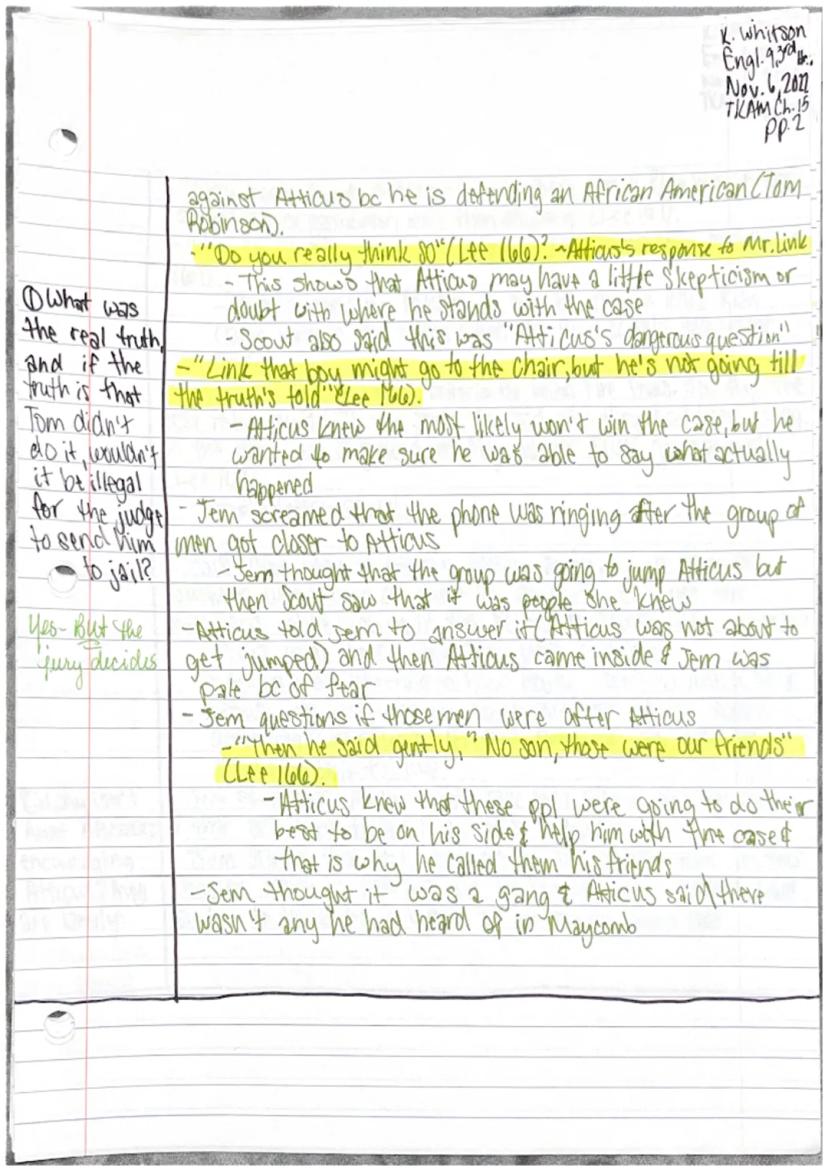 K. Whitson
Engl. 9, 3rd Hr.
Nov. 6, 2022
TKAM Ch. 15
pp. 2
against Atticus bc he is defending an African American (Tom
Robinson).
- "Do you really think so" (Lee 166)? ~Atticus's response to Mr. Link
- This shows that Atticus may have a little skepticism or
doubt with where he stands with the case
- Scout also said this was "Atticus's dangerous question"
- "Link that boy might go to the chair, but he's not going till
the truth's told" (Lee 166).
- Atticus knew the most likely won't win the case, but he
wanted to make sure he was able to say what actually
happened
- Jem screamed that the phone was ringing after the group of
men got closer to Atticus
- Jem thought that the group was going to jump Atticus but
then Scout saw that it was people she knew
- Atticus told Jem to answer it (Atticus was not about to
get jumped) and then Atticus came inside & Jem was
pale bc of fear
- Jem questions if those men were after Atticus
- "Then he said gently, "No son, those were our friends"
(Lee 166).
- Atticus knew that these ppl were going to do their
best to be on his side & help him with the case &
that is why he called them his friends
- Jem thought it was a gang & Atticus said there
wasn't any he had heard of in Maycomb
① What was
the real truth,
and if the
truth is that
Tom didn't
do it, wouldn't
it be illegal
for the judge
to send him
to jail?
Yes - But the
jury decides